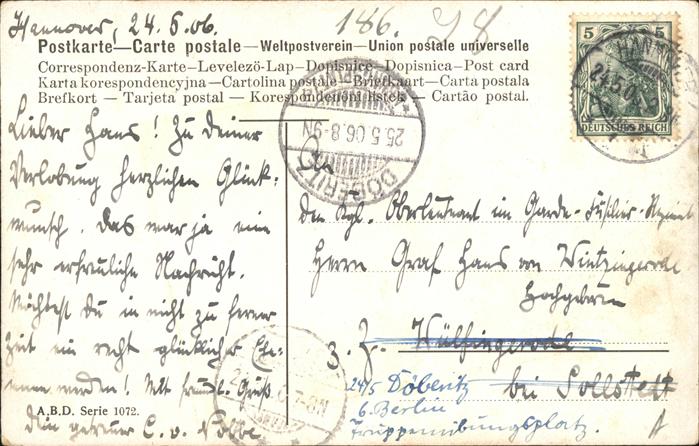 Hannover, 24.5.06.
186.
Postkarte—Carte postale—Weltpostverein—Union postale universelle
Correspondenz-Karte—Levelezö-Lap—Dopisnice—Dopisnica—Post card
Karta korespondencyjna—Cartolina postale—Briefkaart—Carta postala
Brefkort — Tarjeta postal — Korespondenční lístek — Cartão postal.
5 5
DEUTSCHES REICH
HANNOVER
24.5.0
25.5.06.8-9N
DÖBERITZ
Lieber Hans! Zu deiner
Verlobung herzlichen Glück-
wunsch. Das war ja eine
sehr erfreuliche Nachricht.
Möchtest Du in nicht zu ferner
Zeit ein recht glücklicher Ehe-
mann werden! Mit freundl. Gruß
Dein getreuer C. v.
A.B.D. Serie 1072.
Den Kgl. Oberleutnant im Garde-Füsilier-Regiment
Herrn Graf Hans von Wintzingerode
Hochgeboren
z. Z. Wülfingerode
bei Sollstedt
24/5 Döberitz
b. Berlin
Truppenübungsplatz.
7-8N